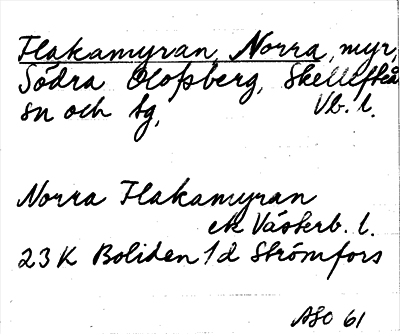 Flakamyran, Norra, myr,
Södra Olofsberg, Skellefteå
sn och tg, Vb. l.
Norra Flakamyran
ek Västerb. l.
23 K Boliden 1d Strömfors
ASO 61